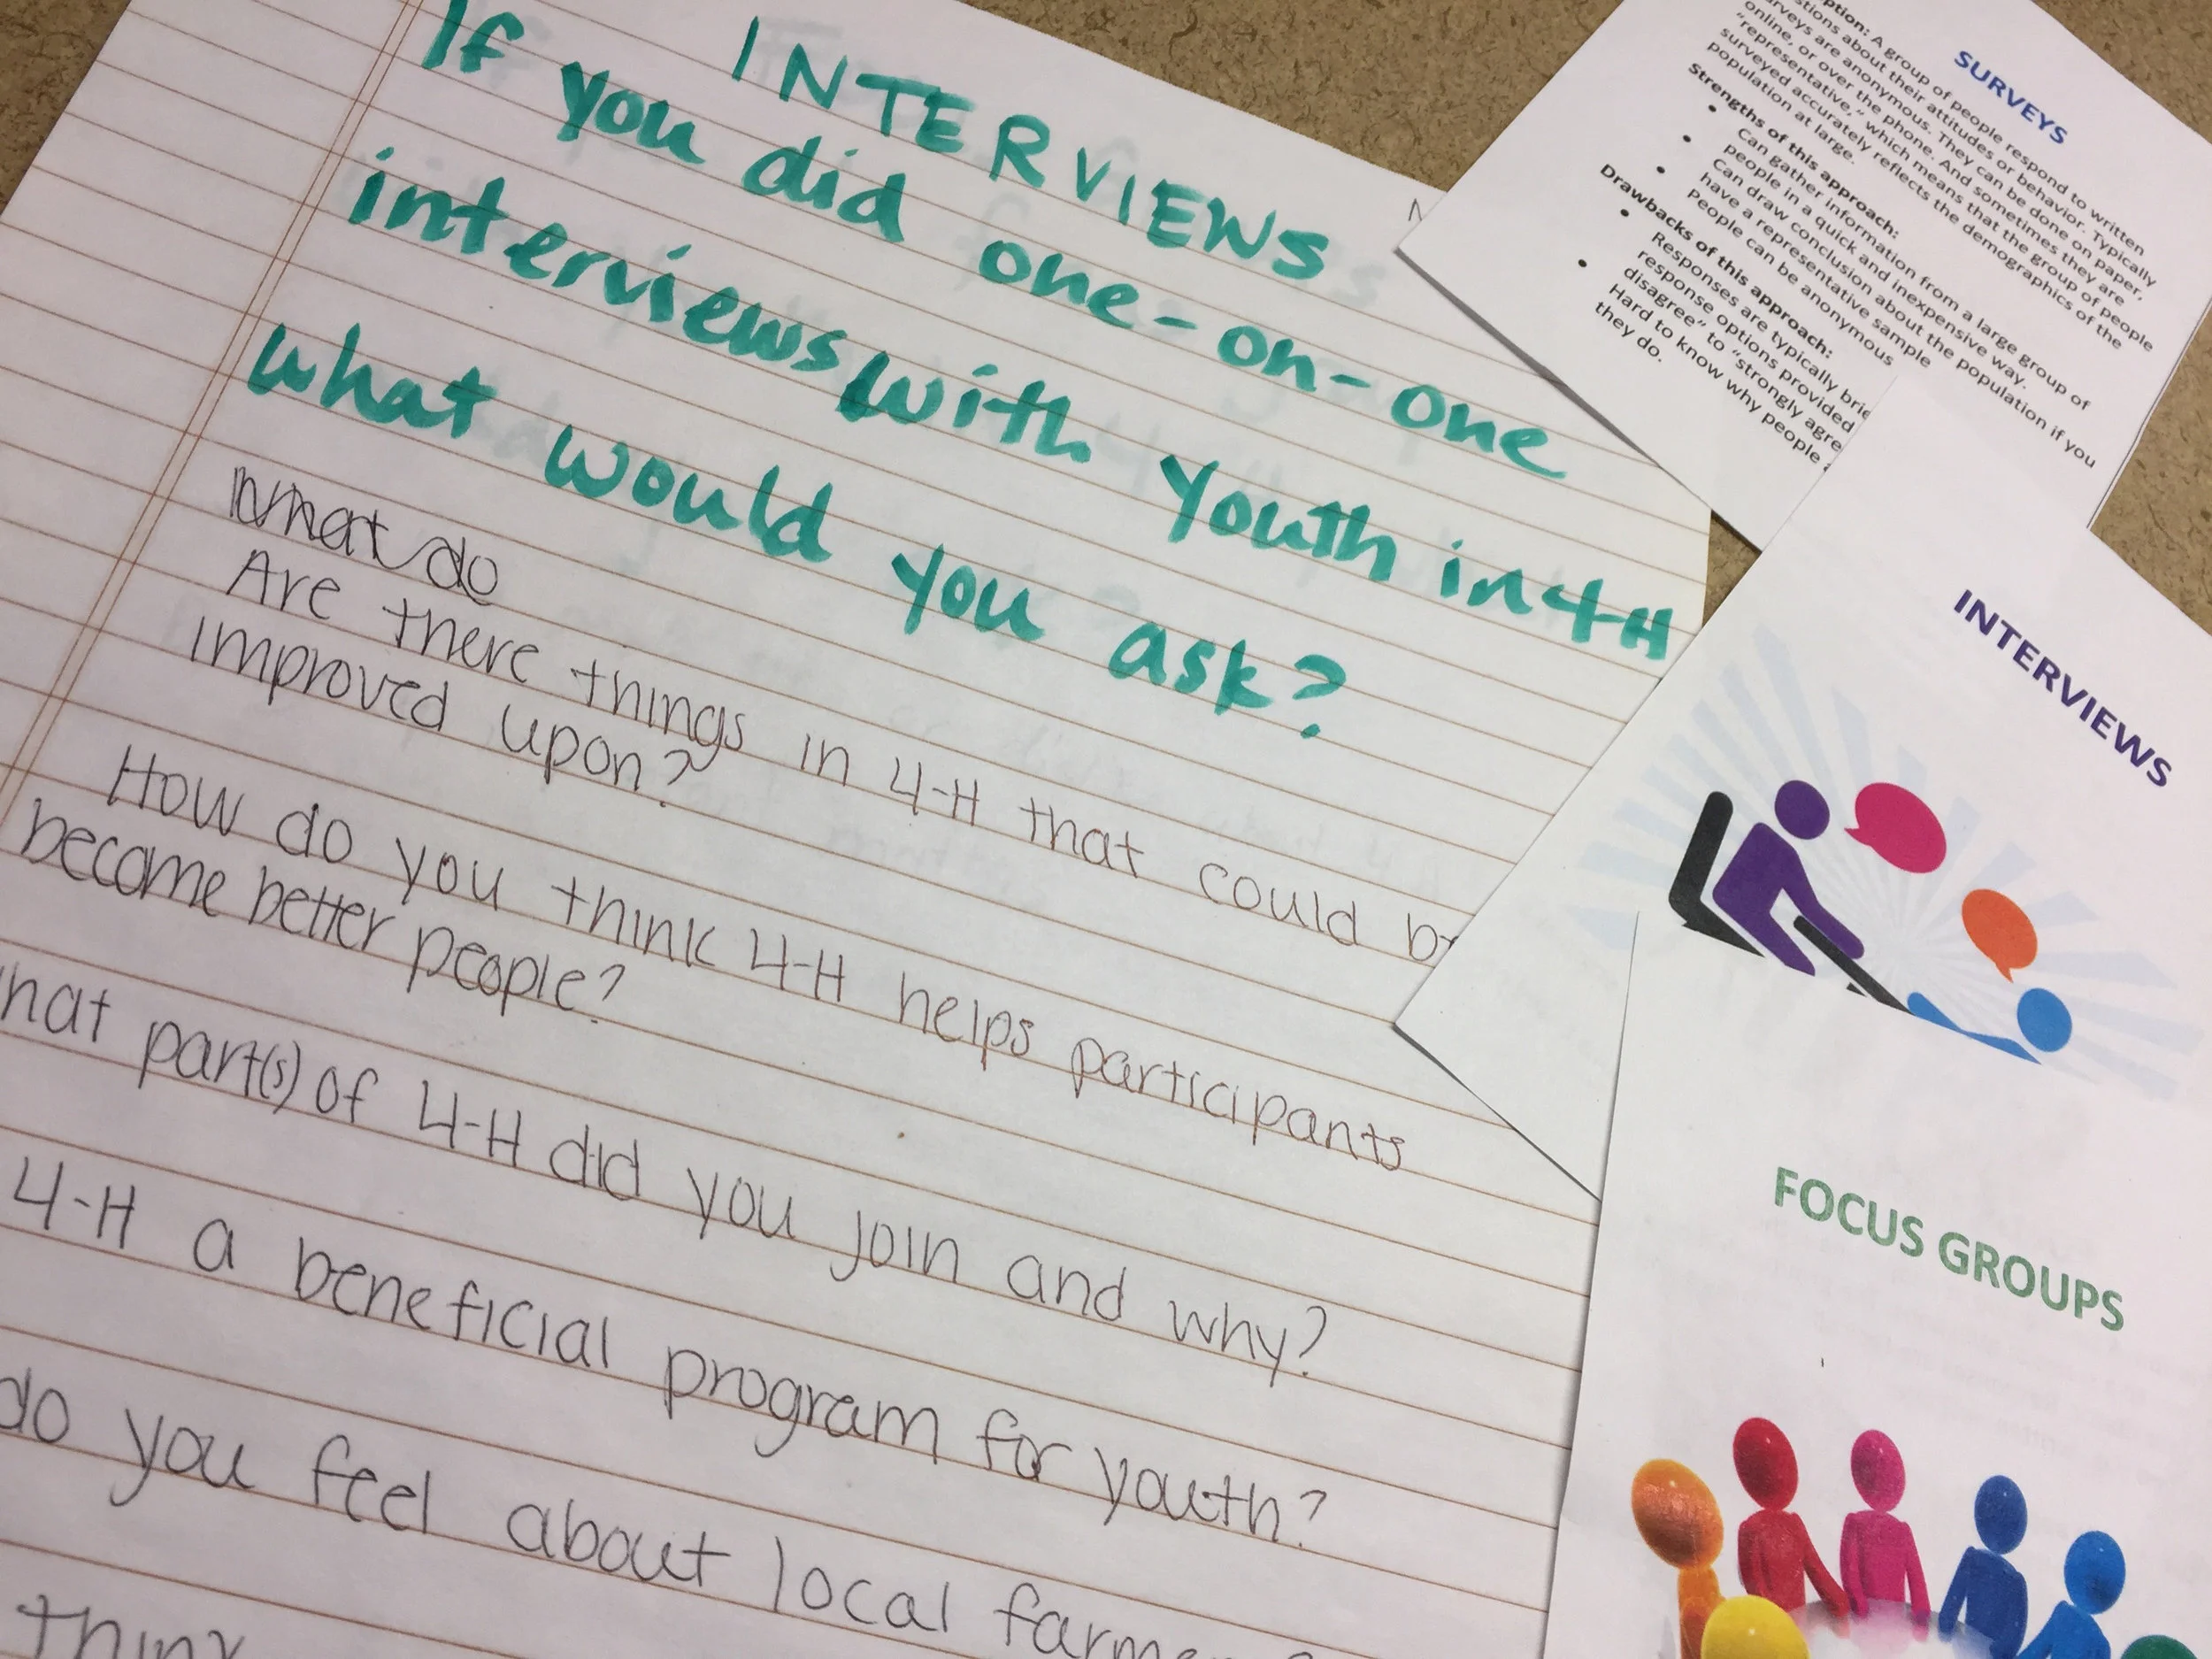 INTERVIEWS
If you did one-on-one
interviews with youth in 4H
what would you ask?
What do
Are there things in 4-H that could
improved upon?
How do you think 4-H helps participants
become better people?
part(s) of 4-H did you join and why?
4-H a beneficial program for youth?
do you feel about local
SURVEYS
A group of people respond to written
about their attitudes or behavior. Typically
are anonymous. They can be done on paper,
online, or over the phone. And sometimes they are
"representative," which means that the group of people
surveyed accurately reflects the demographics of the
population at large.
Strengths of this approach:
• Can gather information from a large group of
people in a quick and inexpensive way.
• Can draw conclusion about the population if you
have a representative sample
• People can be anonymous
Drawbacks of this approach:
• Responses are typically
response options provided
disagree" to "strongly
• Hard to know why people
they do.
INTERVIEWS
FOCUS GROUPS